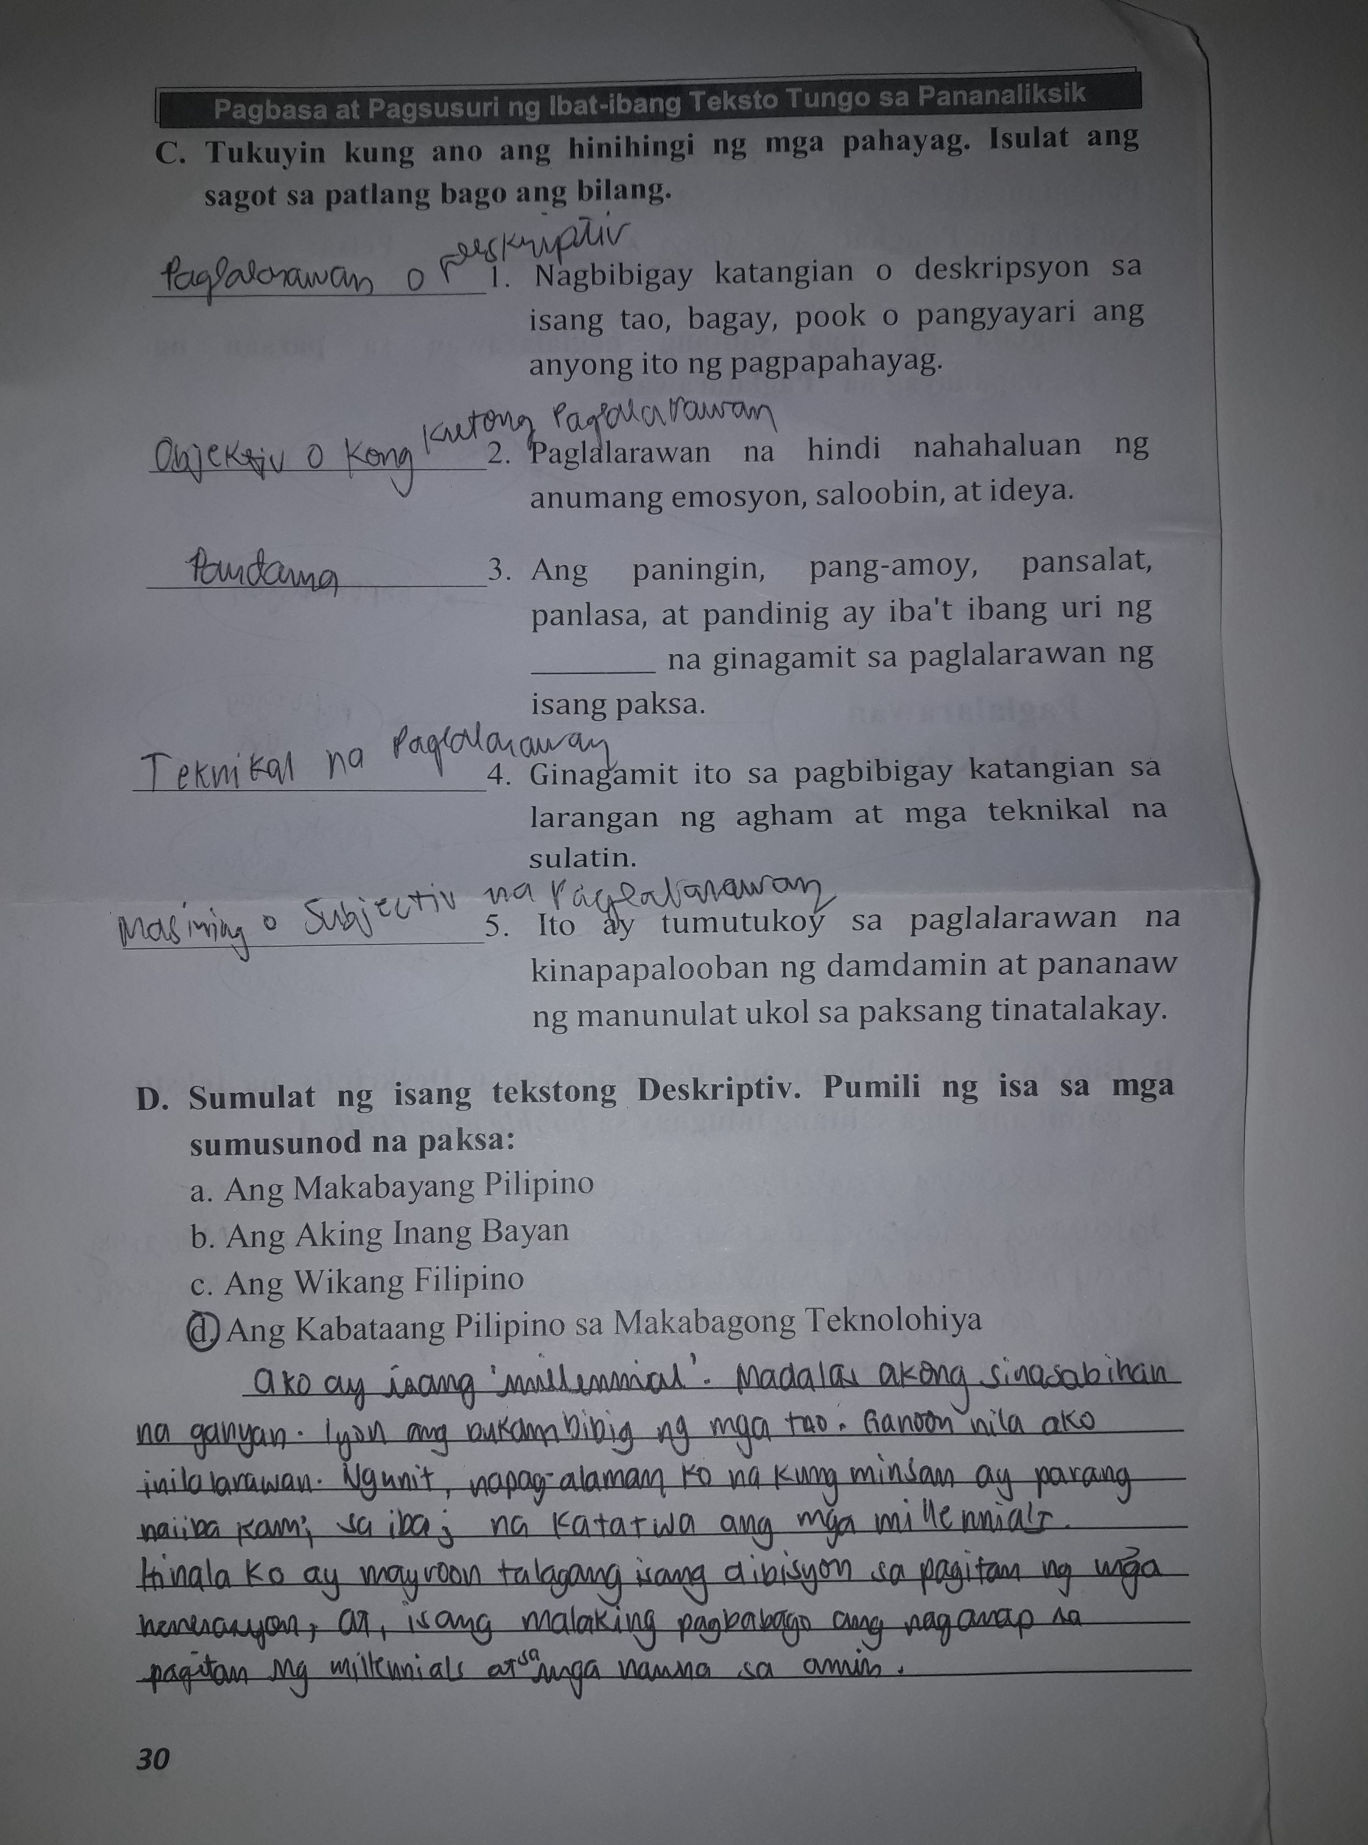 Pagbasa at Pagsusuri ng Ibat-ibang Teksto Tungo sa Pananaliksik
C. Tukuyin kung ano ang hinihingi ng mga pahayag. Isulat ang
sagot sa patlang bago ang bilang.
Paglalarawan o deskriptiv
1. Nagbibigay katangian o deskripsyon sa
isang tao, bagay, pook o pangyayari ang
anyong ito ng pagpapahayag.
Objektiv o kong kretong Paglalarawan
2. Paglalarawan na hindi nahahaluan ng
anumang emosyon, saloobin, at ideya.
Pandama
3. Ang paningin, pang-amoy, pansalat,
panlasa, at pandinig ay iba't ibang uri ng
________ na ginagamit sa paglalarawan ng
isang paksa.
Teknikal na Paglalarawan
4. Ginagamit ito sa pagbibigay katangian sa
larangan ng agham at mga teknikal na
sulatin.
Masining o Subjectiv na Paglalarawan
5. Ito ay tumutukoy sa paglalarawan na
kinapapalooban ng damdamin at pananaw
ng manunulat ukol sa paksang tinatalakay.
D. Sumulat ng isang tekstong Deskriptiv. Pumili ng isa sa mga
sumusunod na paksa:
a. Ang Makabayang Pilipino
b. Ang Aking Inang Bayan
c. Ang Wikang Filipino
d. Ang Kabataang Pilipino sa Makabagong Teknolohiya
Ako ay isang 'millennial'. Madalas akong sinasabihan
na ganyan. Iyon ang bukambibig ng mga tao. Ganoon nila ako
inilalarawan. Ngunit, napag-alaman ko na kung minsan ay parang
naiiba kami sa iba; na katatwa ang mga millennials.
Hinala ko ay mayroon talagang isang dibisyon sa pagitan ng mga
henerasyon, at, isang malaking pagbabago ang naganap sa
pagitan ng millennials at sa mga nauna sa amin.
30